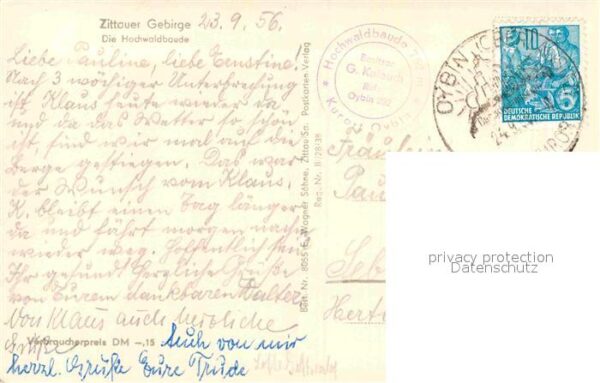 Zittauer Gebirge 23.9.56.
Die Hochwaldbaude
Liebe Pauline, liebe Ernstine!
Nach 3 wöchiger Unterbrechung
ist Klaus heute wieder da
und da das Wetter so schön
ist sind wir mal auf die
Berge gestiegen. Das war
der Wunsch vom Klaus.
K. bleibt einen Tag länger
da und fährt morgen nach
wieder weg. Hoffentlich seid
Ihr gesund. Herzliche Grüße
von Eurem dankbaren Walter
Von Klaus auch herzliche
Grüße
Verbraucherpreis DM -,15
Auch von mir
herzl. Grüße Eure Trude
Best. Nr. 8055 E. Wagner Söhne, Zittau Sa. Postkarten Verlag
Reg. Nr. B/28/38
Hochwaldbaude
Besitzer
G.
Oybin
Kurort Oybin
OYBIN
24.9
10
5
DEUTSCHE
DEMOKRATISCHE REPUBLIK
Fräulein
privacy protection
Datenschutz